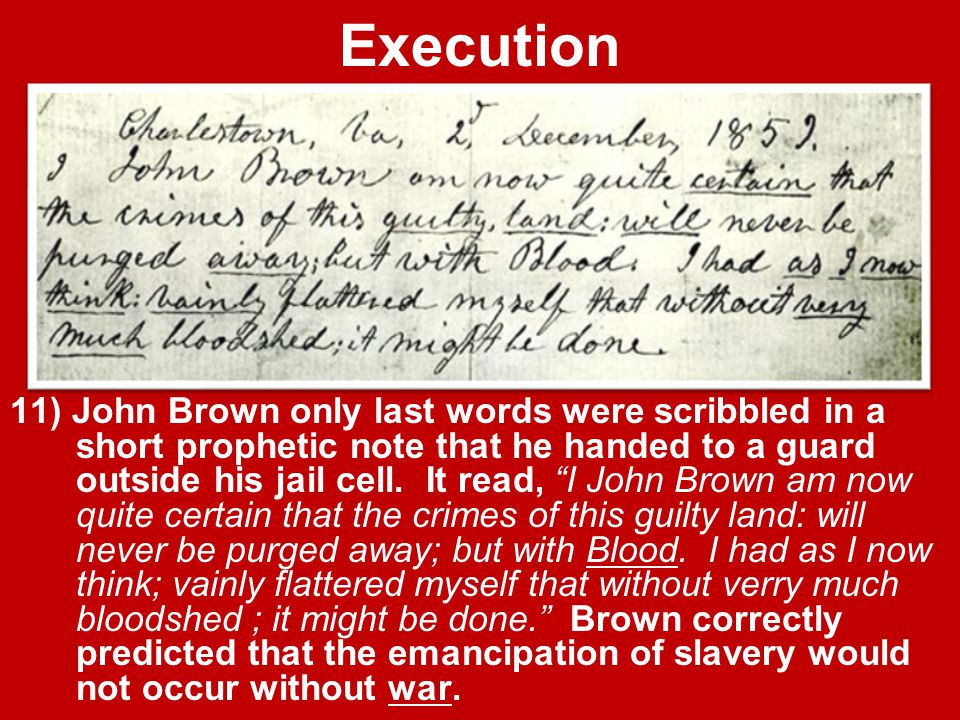 Execution
Charlestown, Va, 2d, December, 1859.
I John Brown am now quite certain that
the crimes of this guilty, land: will never be
purged away; but with Blood. I had as I now
think: vainly flattered myself that without verry
much bloodshed; it might be done.
11) John Brown only last words were scribbled in a
short prophetic note that he handed to a guard
outside his jail cell. It read, “I John Brown am now
quite certain that the crimes of this guilty land: will
never be purged away; but with Blood. I had as I now
think; vainly flattered myself that without verry much
bloodshed ; it might be done.” Brown correctly
predicted that the emancipation of slavery would
not occur without war.